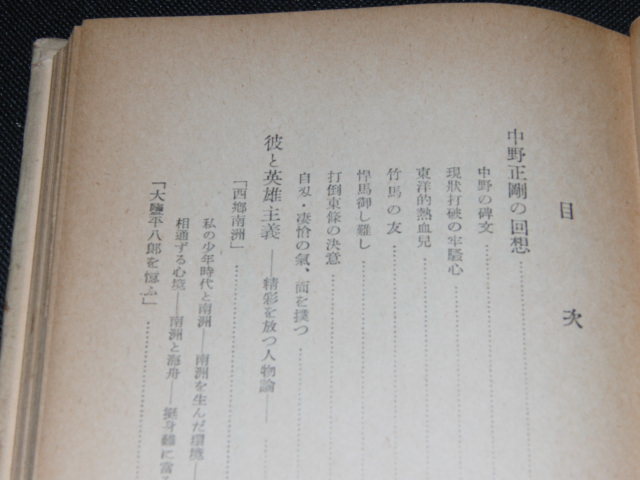 目次
中野正剛の回想
中野の碑文
現狀打破の牢騷心
東洋的熱血兒
竹馬の友
悍馬御し難し
打倒東條の決意
自刃・凄愴の氣、面を撲つ
彼と英雄主義――精彩を放つ人物論――
「西鄉南洲」
私の少年時代と南洲――南洲を生んだ環境――
相通ずる心境――南洲と海舟――挺身難に當る
「大鹽平八郎を憶ふ」